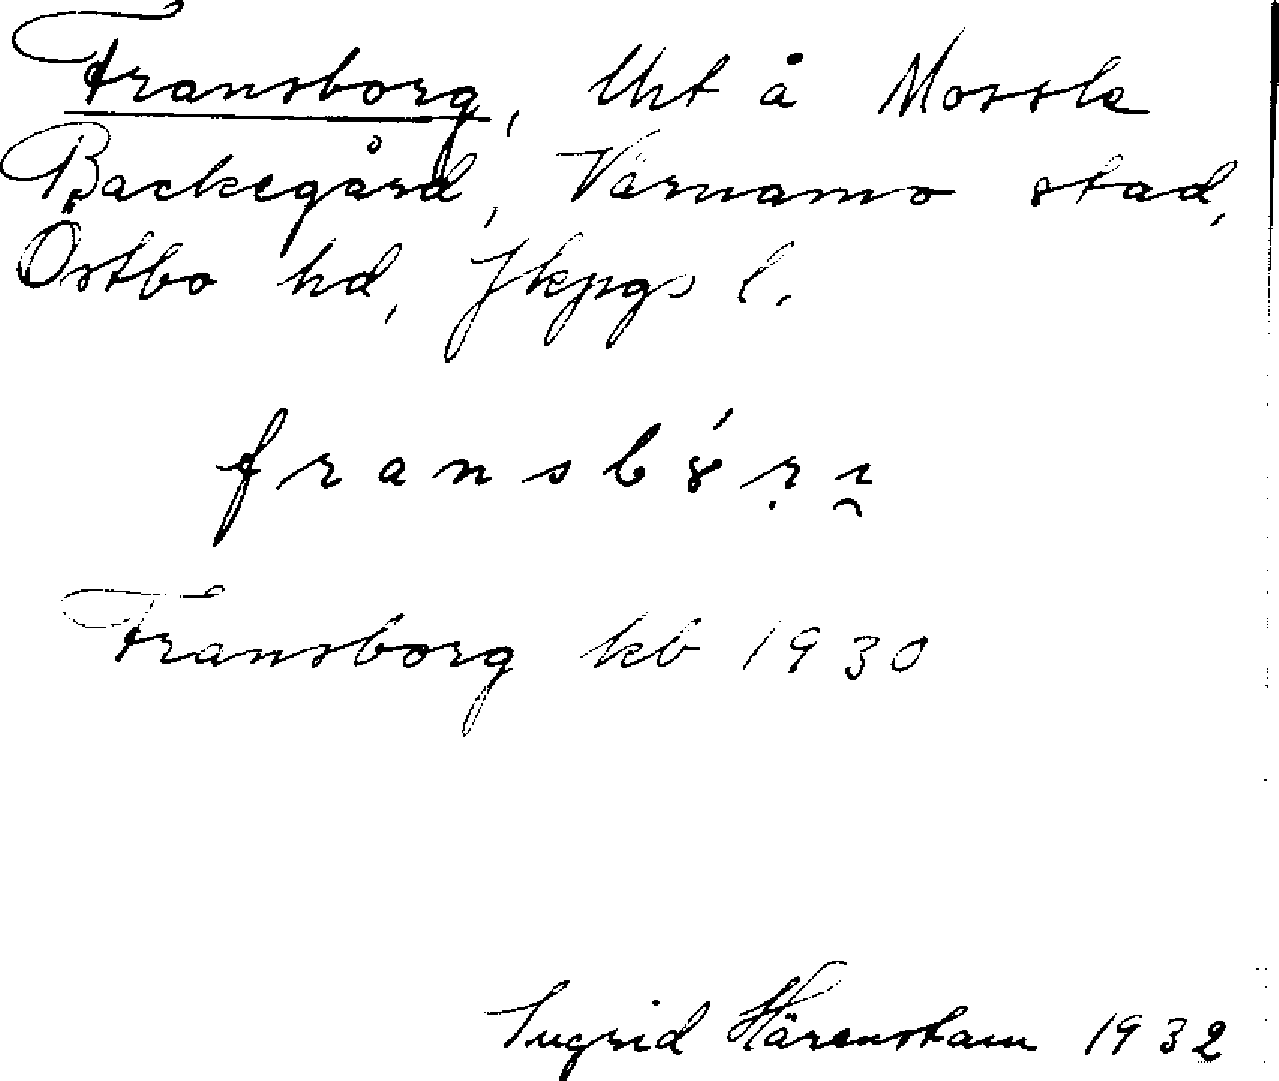 Fransborg, lht å Mossle
Backegård, Värnamo stad,
Östbo hd, Jkpgs l.
Fransborg kb 1930
Ingrid Härenstam 1932